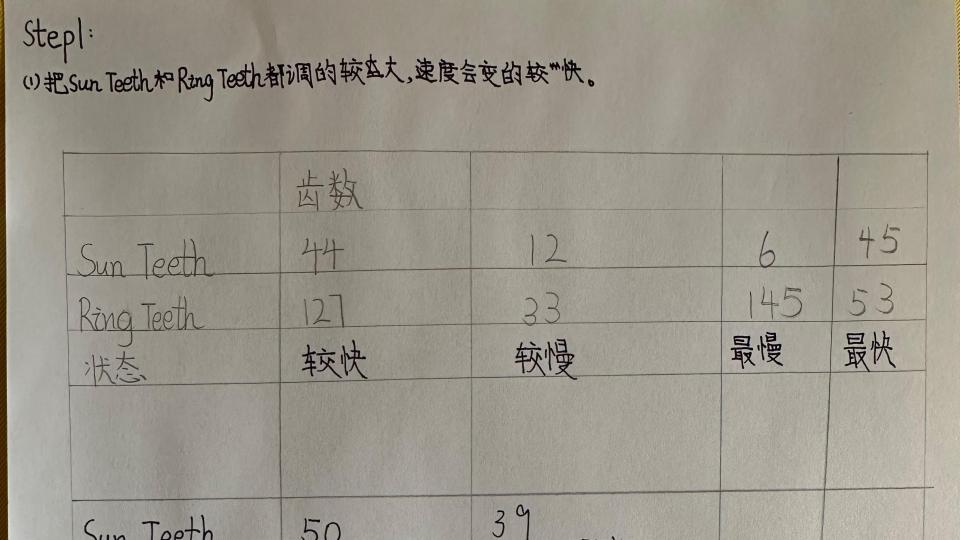 Step1:
(1)把Sun Teeth和Ring Teeth都调的较大,速度会变的较快。
齿数
Sun Teeth 44 12 6 45
Ring Teeth 127 33 145 53
状态 较快 较慢 最慢 最快
Sun Teeth 50 39